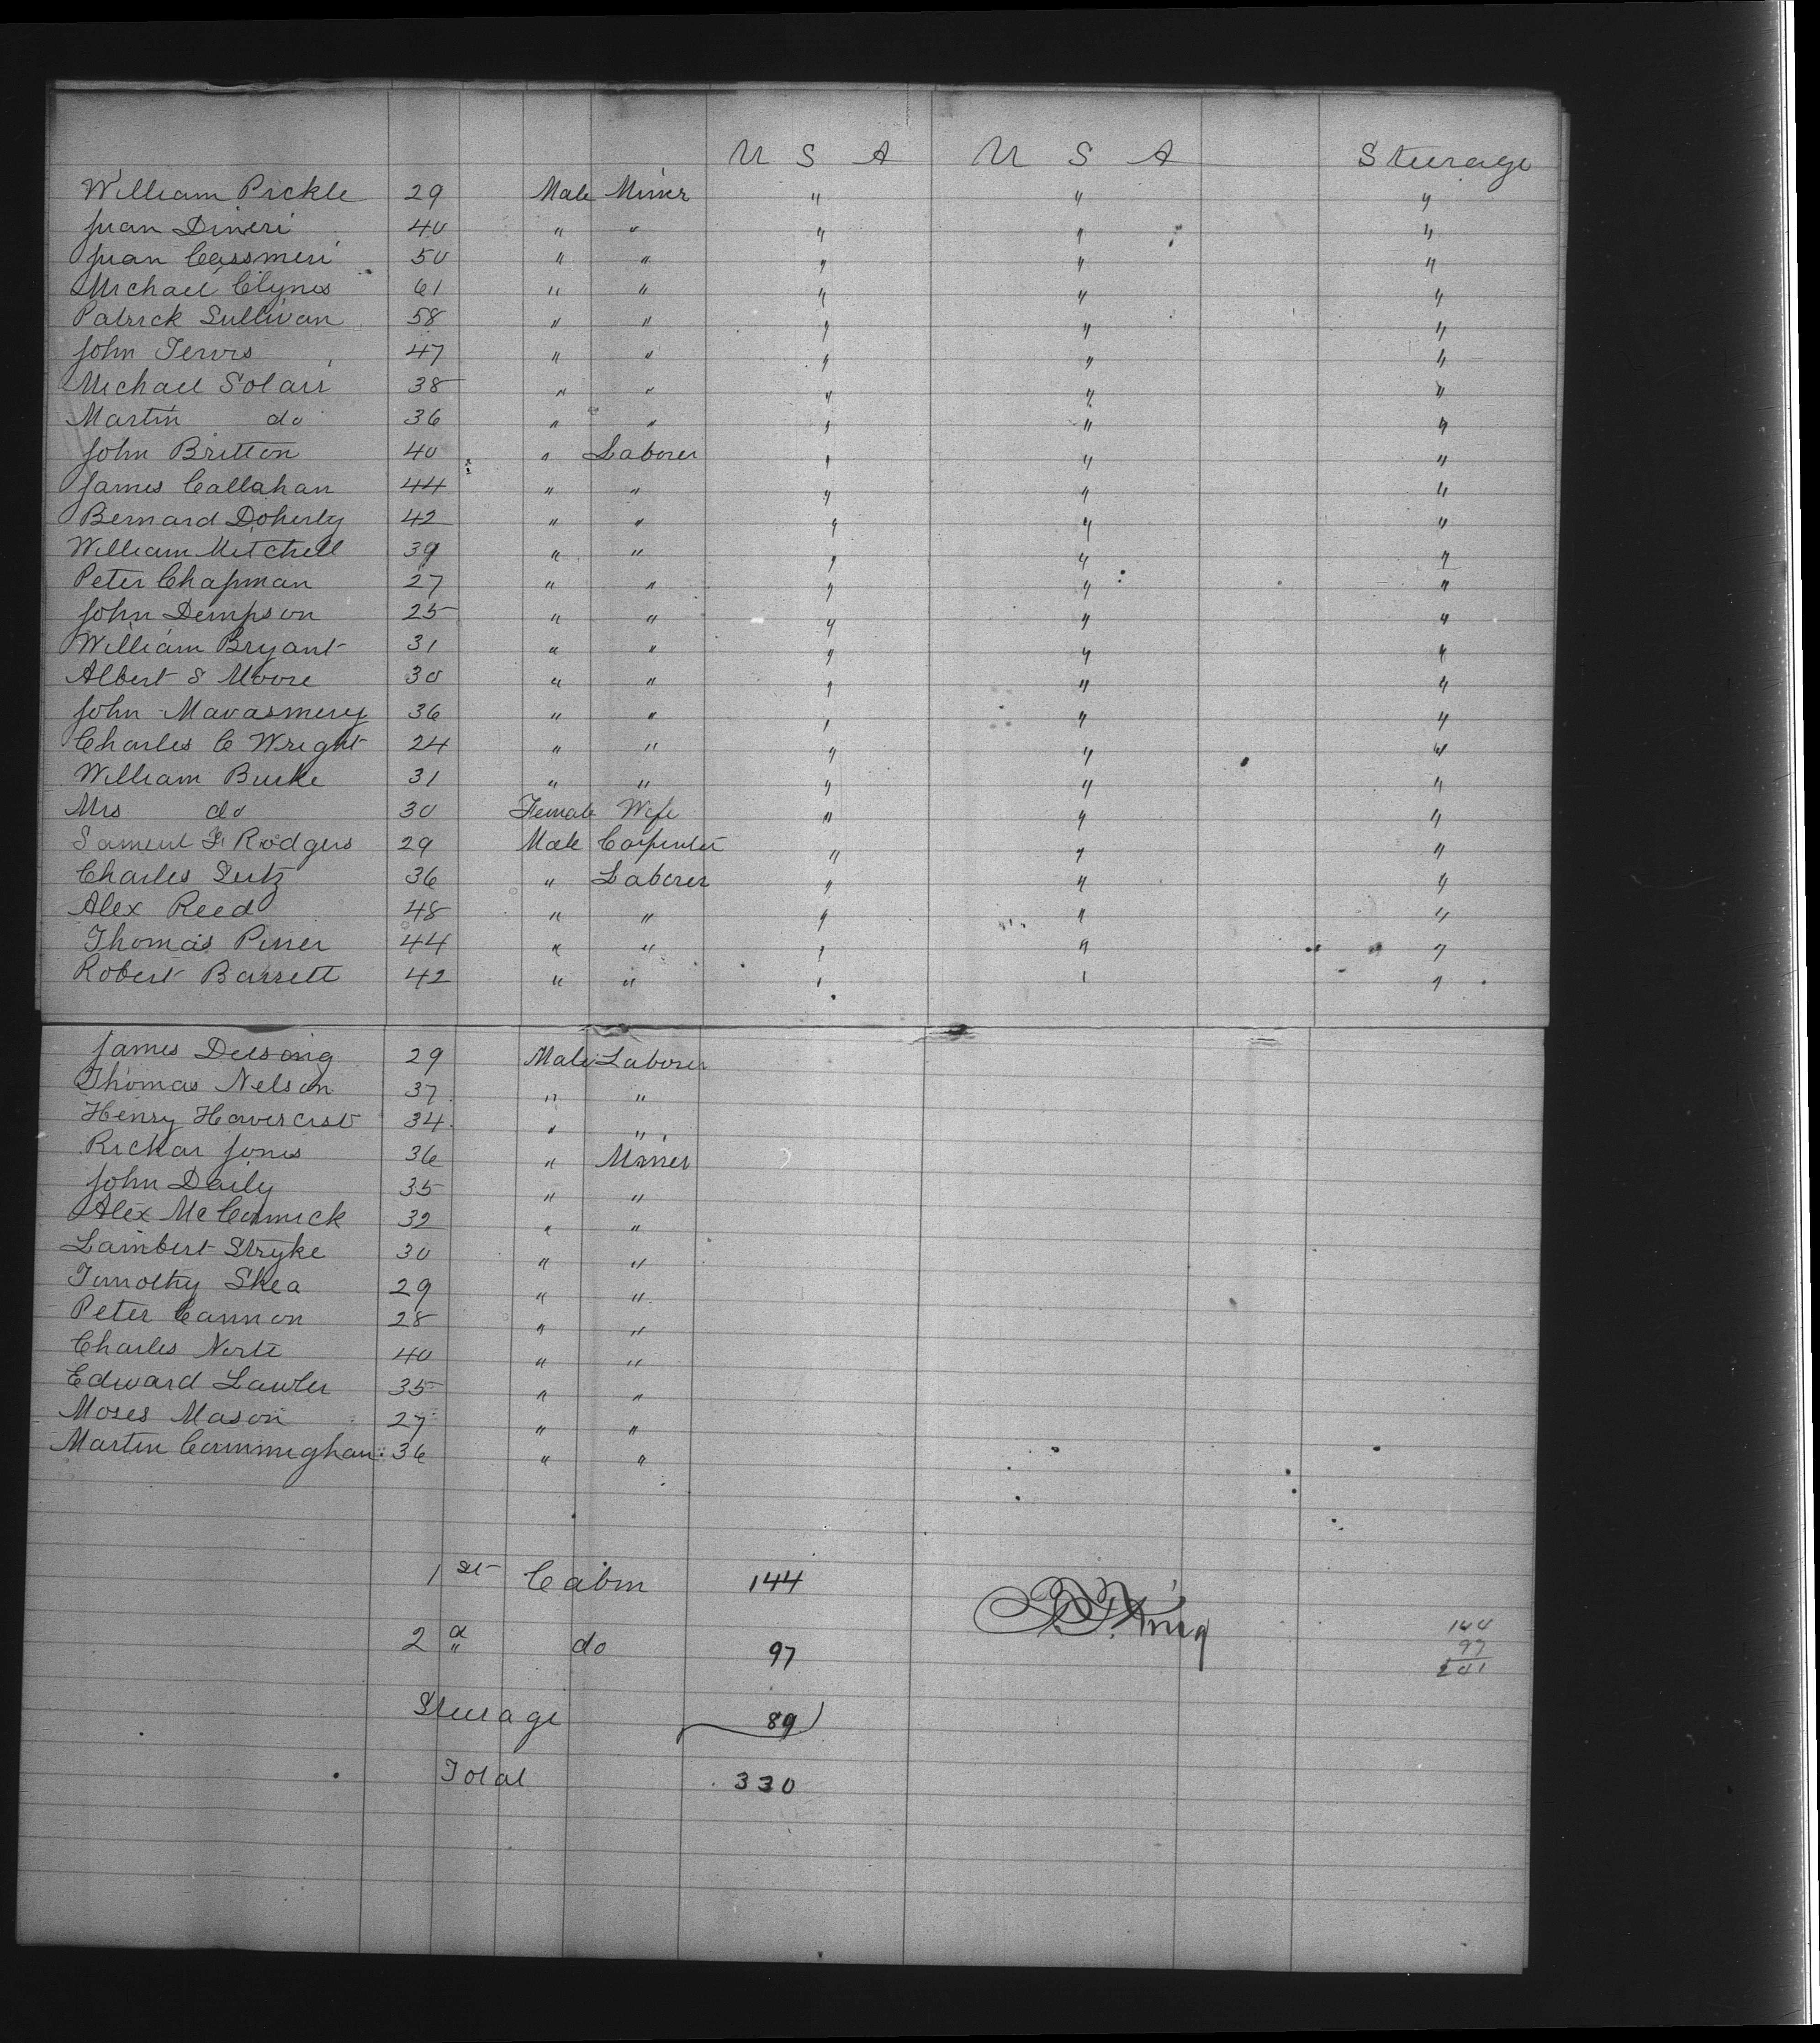 U S A U S A Steerage
William Pickle 29 Male Miner " " "
Juan Dineri 40 " " " " "
Juan Cassmeri 50 " " " " "
Michael Clynes 61 " " " " "
Patrick Sullivan 58 " " " " "
John Jervis 47 " " " " "
Michael Solari 38 " " " " "
Martin do 36 " " " " "
John Britton 40 " Laborer " " "
James Callahan 44 " " " " "
Bernard Doherty 42 " " " " "
William Mitchell 39 " " " " "
Peter Chapman 27 " " " " "
John Dempson 25 " " " " "
William Bryant 31 " " " " "
Albert S Moore 30 " " " " "
John Mavasmery 36 " " " " "
Charles C Wright 24 " " " " "
William Burke 31 " " " " "
Mrs do 30 Female Wife " " "
Samuel F Rodgers 29 Male Carpenter " " "
Charles Seitz 36 " Laborer " " "
Alex Reed 48 " " " " "
Thomas Piner 44 " " " " "
Robert Barrett 42 " " " " "
James Delsong 29 Male Laborer
Thomas Nelson 37 " "
Henry 34 " "
Richar Jones 36 " Miner
John Daily 35 " "
Alex McCormick 32 " "
Lambert Stryke 30 " "
Timothy Shea 29 " "
Peter Cannon 28 " "
Charles North 40 " "
Edward Lawler 35 " "
Moses Mason 27 " "
Martin Cunnnighan 36 " "
1st Cabin 144
2d " do 97
Steerage 89
Total 330
King
144
97
241